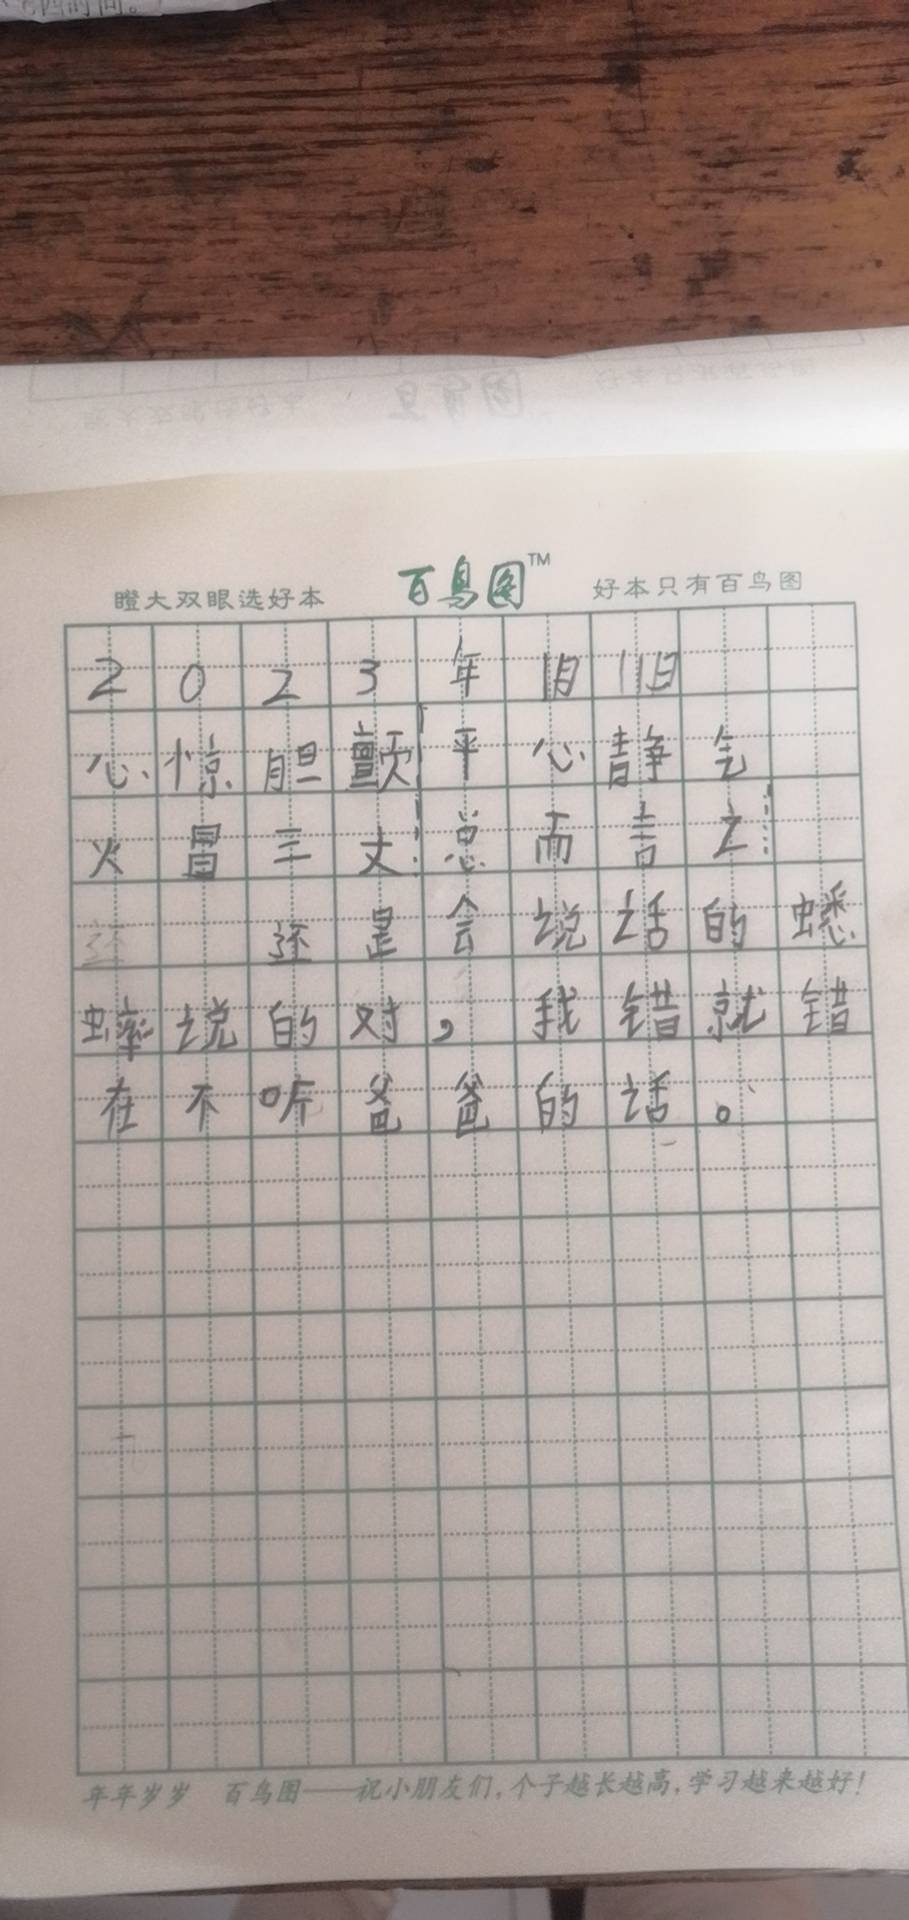 四时间。
瞪大双眼选好本 百鸟图™ 好本只有百鸟图
2023年1月11日
心惊胆颤平心静气
火冒三丈总而言之
还 还是会说话的蟋
蟀说的对，我错就错
在不听爸爸的话。
年年岁岁 百鸟图——祝小朋友们，个子越长越高，学习越来越好！